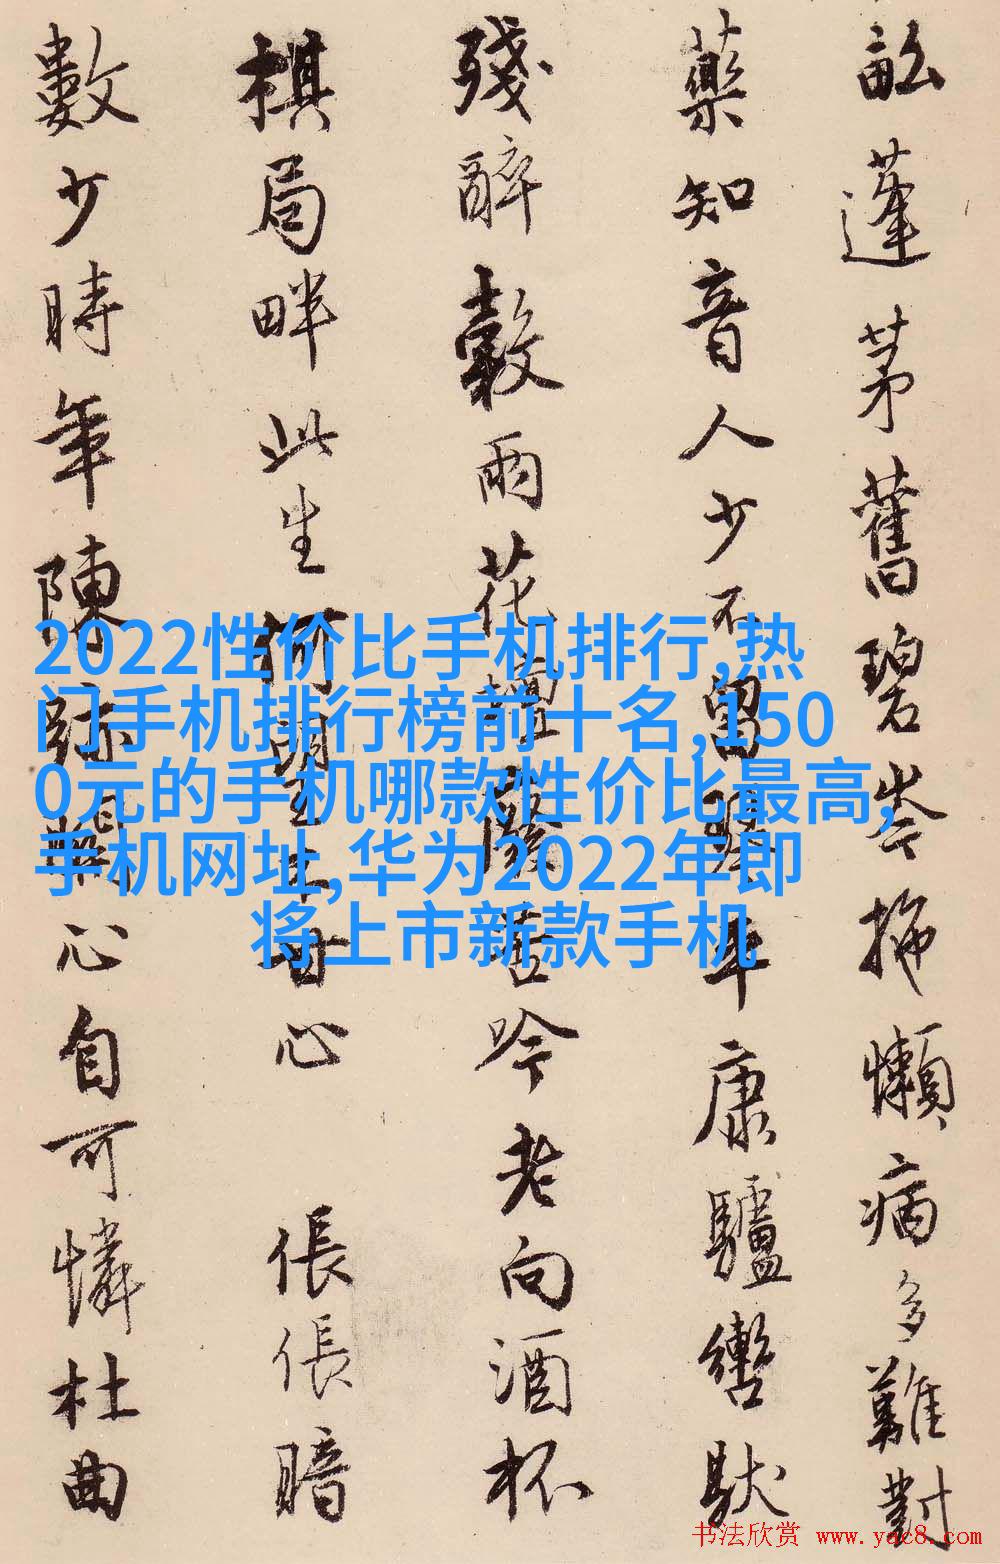 畆蓬茅舊碧岑拖懶病多難對
藥知音人少不留琴平康驢轡馱
殘醉穀雨花壇廢苦吟老向酒杯
棋局畔此生何甘心 悵悵暗
數少時年陳跡關心自可憐杜曲
2022性价比手机排行,热
门手机排行榜前十名,150
0元的手机哪款性价比最高,
手机网址,华为2022年即
将上市新款手机
书法欣赏 www.yac8.com